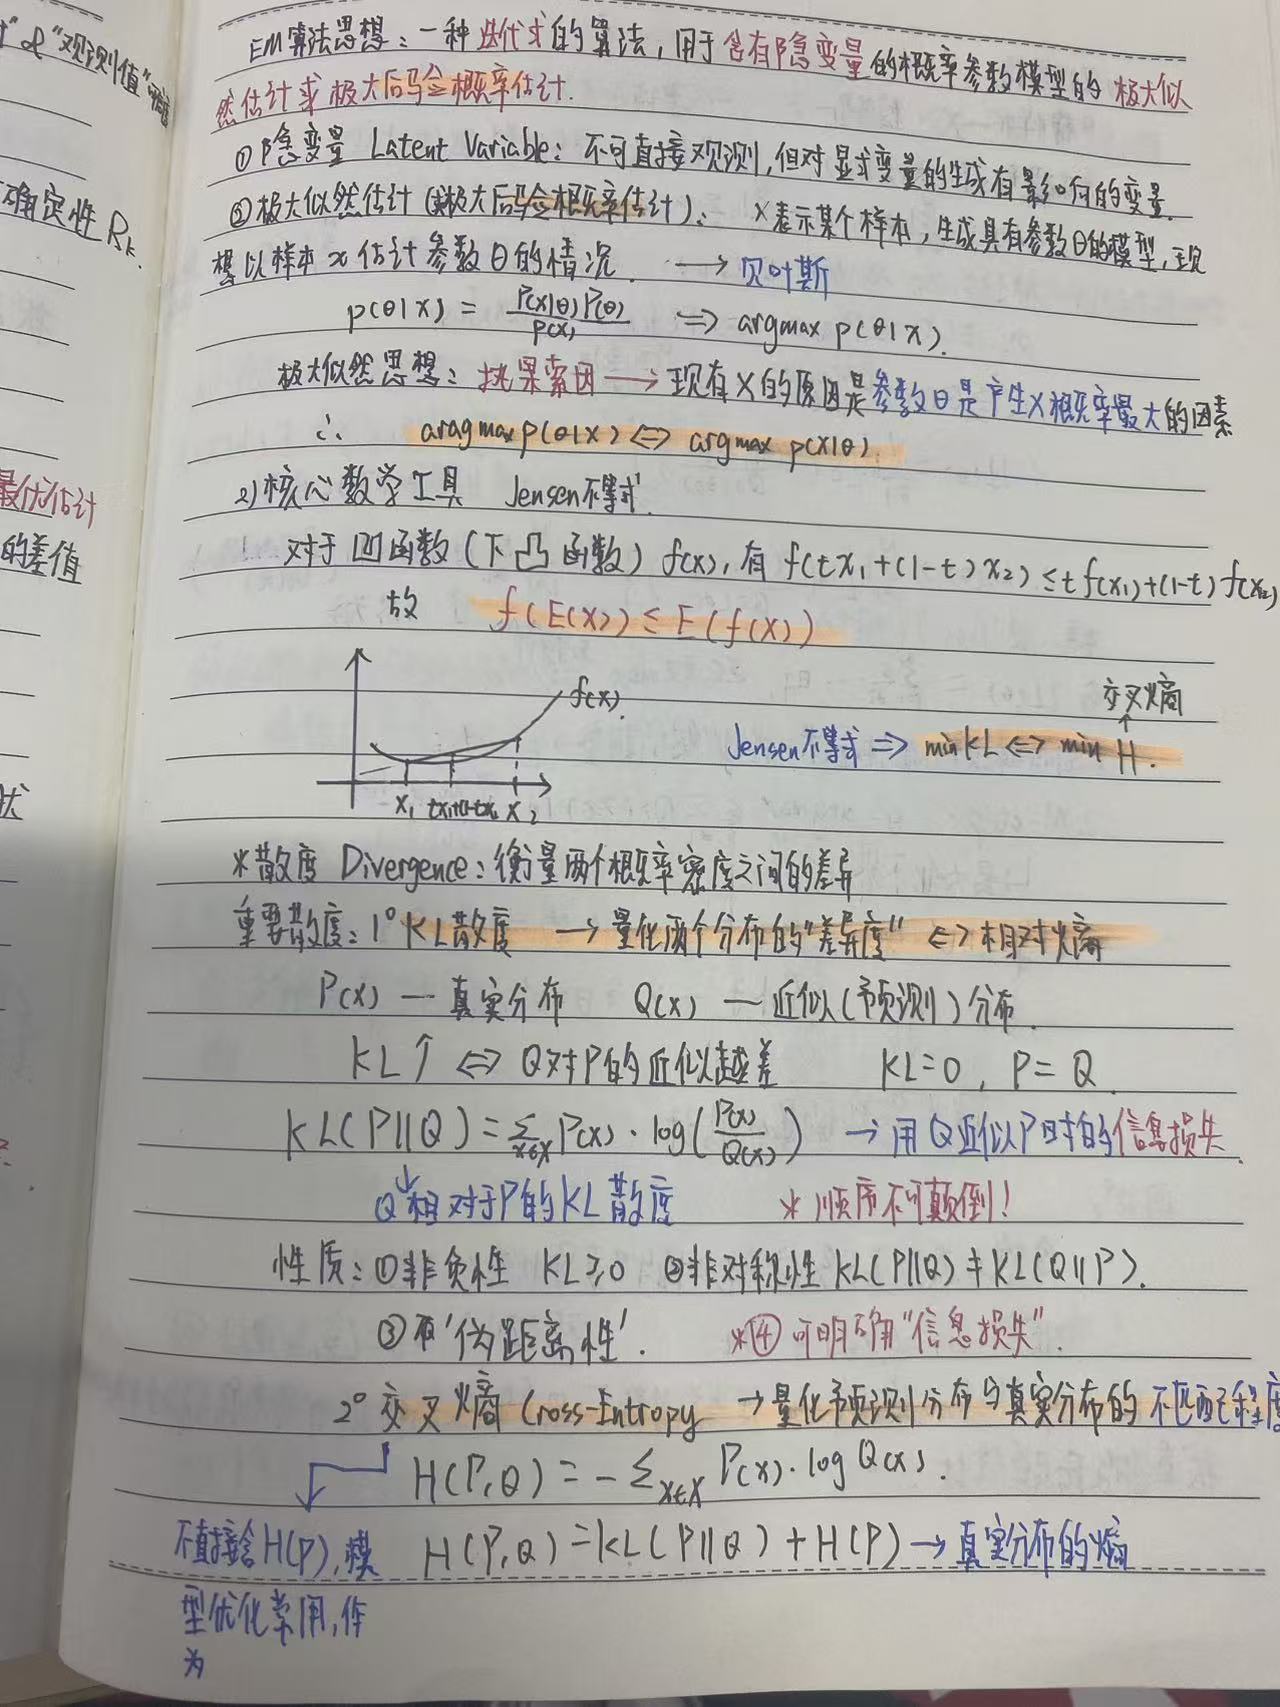 "观测值"
确定性 Rk.
最优估计
的差值
状
EM算法思想：一种迭代式的算法，用于含有隐变量的概率参数模型的极大似
然估计或极大后验概率估计.
①隐变量 Latent Variable：不可直接观测，但对显式变量的生成有影响的变量.
②极大似然估计（极大后验概率估计）：x表示某个样本，生成具有参数θ的模型，现
想以样本x估计参数θ的情况. → 贝叶斯
p(θ|x) = P(x|θ)P(θ) / P(x) ⇒ argmax p(θ|x).
极大似然思想：执果索因 → 现有X的原因是参数θ是产生X概率最大的因素
∴ aragmax p(θ|x) ⇔ argmax p(x|θ).
2)核心数学工具 Jensen不等式.
对于凹函数(下凸函数) f(x), 有 f(tx₁+(1-t)x₂) ≤ tf(x₁)+(1-t)f(x₂)
故 f(E(x)) ≤ E(f(x))
f(x).
交叉熵
Jensen不等式 ⇒ min KL ⇔ min H.
x₁ tx₁+(1-t)x₂ x₂
*散度 Divergence：衡量两个概率密度之间的差异
重要散度：1° KL散度 → 量化两个分布的"差异度" ⇔ 相对熵
P(x) — 真实分布 Q(x) — 近似(预测)分布.
KL↑ ⇔ Q对P的近似越差 KL=0, P=Q.
KL(P||Q) = Σx∈X P(x)·log(P(x)/Q(x)) → 用Q近似P时的信息损失.
Q相对于P的KL散度 *顺序不可颠倒!
性质：①非负性 KL≥0 ②非对称性 KL(P||Q) ≠ KL(Q||P).
③有'伪距离性'. *④可明确"信息损失".
2° 交叉熵 Cross-Entropy → 量化预测分布与真实分布的不匹配程度
H(P,Q) = -Σx∈X P(x)·log Q(x).
不直接含H(P), 模
H(P,Q) = KL(P||Q) + H(P) → 真实分布的熵
型优化常用, 作
为